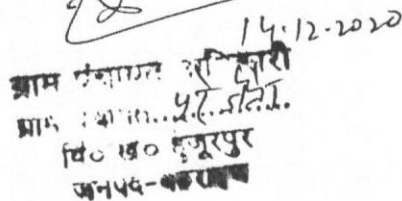 14.12.2020
ग्राम पंचायत अधिकारी
ग्राम पंचायत..
वि० ख० हुजूरपुर
जनपद-बहराइच